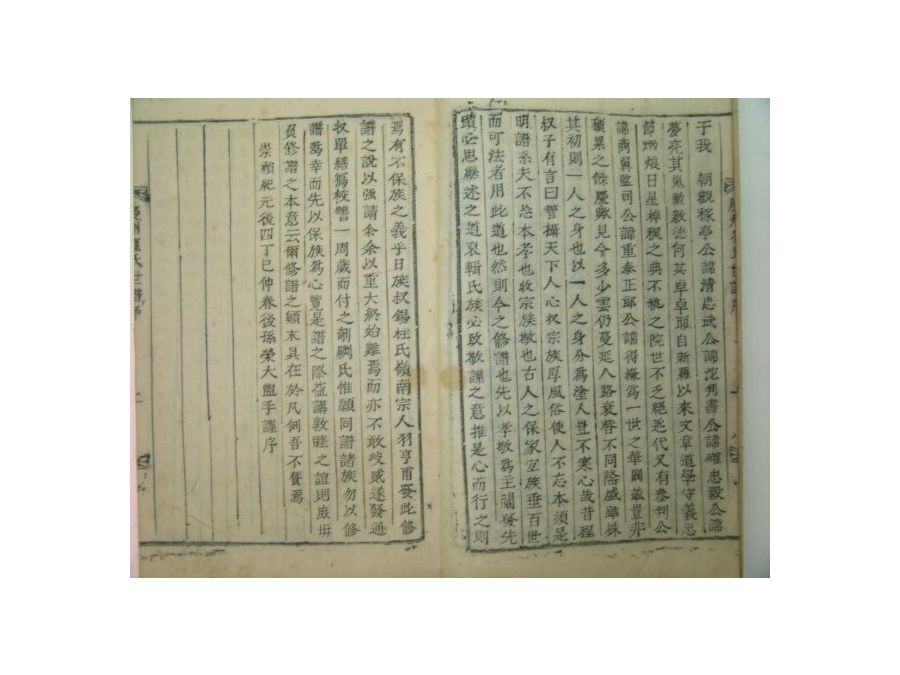 于我 朝觀稼亭公諱清忠武公諱沱判書公諱確忠毅公諱
夢亮其鬼勳敭德何其卓卓耶自新羅以來文章道學守義忠
節炳烺日星棹稧之典不祧之院世不乏絕近代又有叅判公
諱商翼監司公諱重泰正郎公諱得為一世之華閥玆豈非
積累之餘慶歟見今多少雲仍蔓延八路衰替不同隆盛雖殊
其初則一人之身也以一人之身分爲塗人豈不寒心哉昔程
叔子有言曰管攝天下人心收宗族厚風俗使人不忘本須是
明譜系夫不忘本孝也收宗族敬也古人之保家宜族垂百世
而可法者用此道也然則今之修譜也先以孝敬爲主闡發先
蹟必思繼述之道裒輯氏族必致敬謹之意推是心而行之則
焉有不保族之義乎日族叔錫柱氏嶺南宗人羽亨甫發此修
譜之說以强請余余以重大終始難焉而亦不敢歧貳遂發通
收單繕寫校讐一周歲而付之剞劂氏惟願同譜諸族勿以修
譜爲幸而先以保族爲心覽是譜之際益講敦睦之誼則庶毋
負修譜之本意云爾修譜之顚末具在於凡例吾不贅焉
崇禎紀元後四丁巳仲春後孫榮大盥手謹序
慶州崔氏世譜序